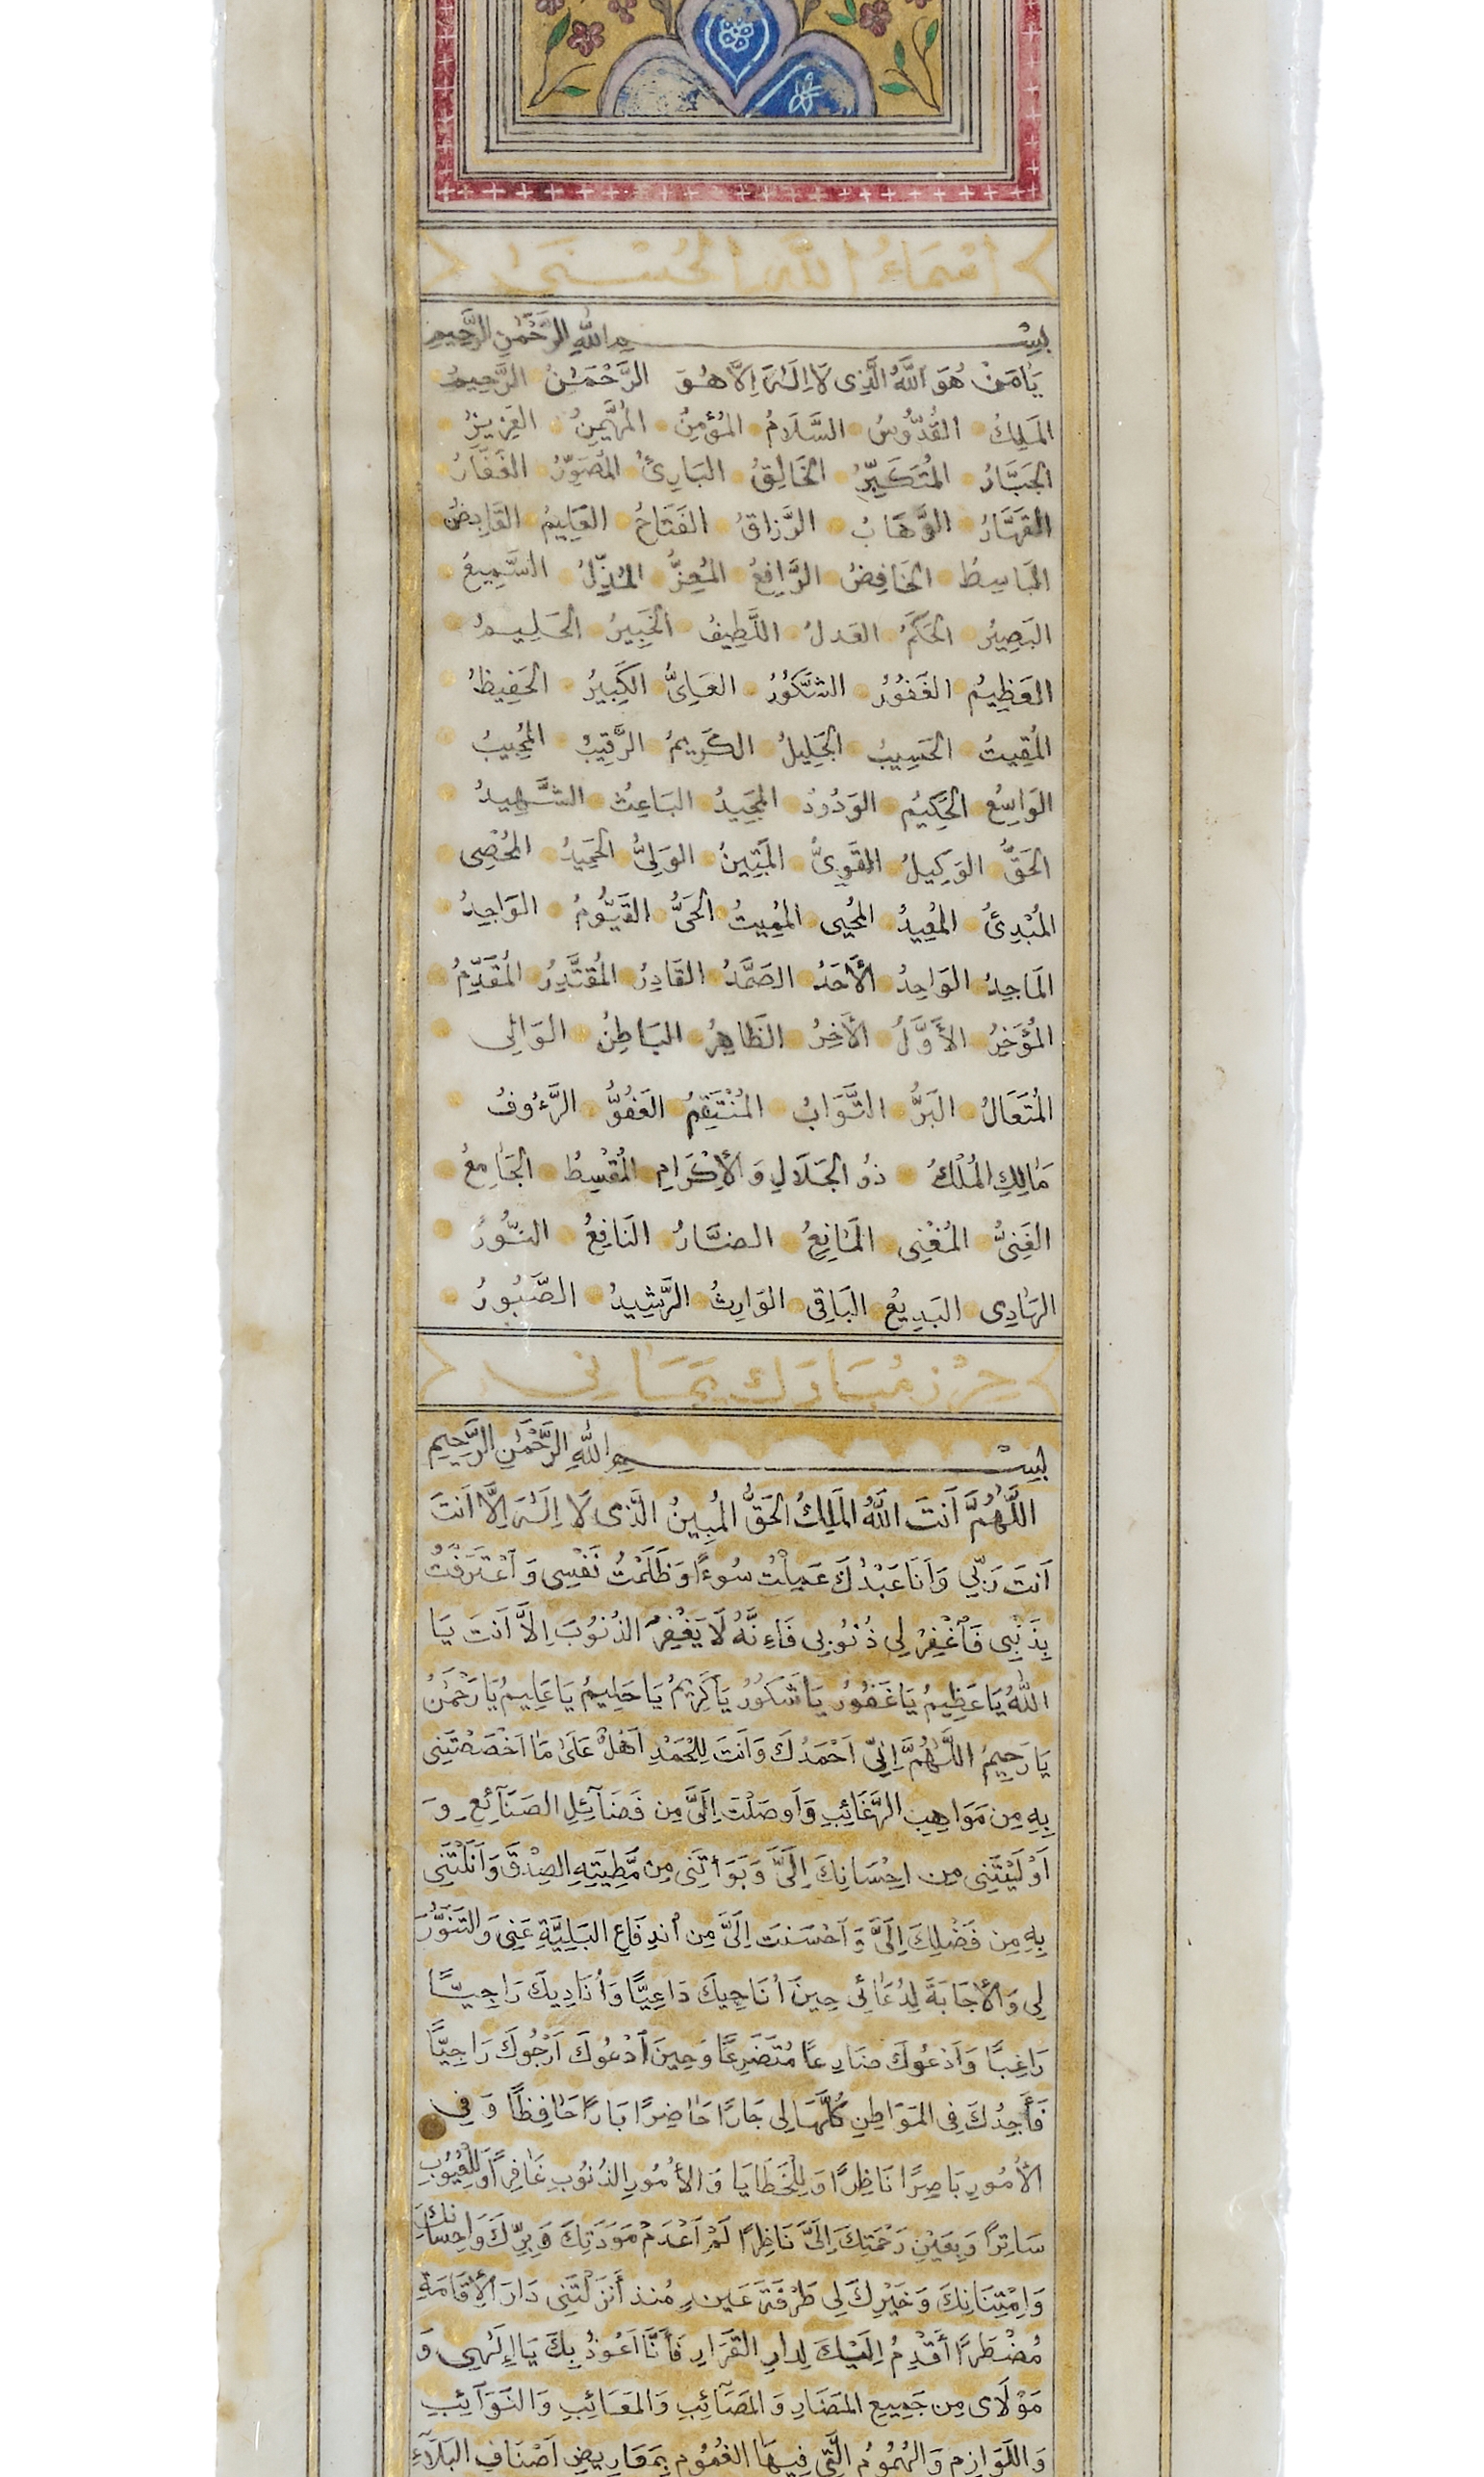 اَسْمَاءُ اللّٰهِ الحُسْنىٰ
بِسْمِ اللّٰهِ الرَّحْمٰنِ الرَّحِيمِ
يَا مَنْ هُوَ اللَّهُ الَّذِى لَا اِلٰهَ اِلَّا هُوَ الرَّحْمٰنُ الرَّحِيمُ
المَلِكُ القُدّوُسُ السَّلَامُ المُؤمِنُ المُهَيْمِنُ العَزِيزُ
الجَبَّارُ المُتَكَبِّرُ الخَالِقُ البَارِئُ المُصَوِّرُ الغَفَّارُ
القَهَّارُ الوَهَّابُ الرَّزاقُ الفَتَاحُ العَلِيمُ القَابِضُ
البَاسِطُ الخَافِضُ الرَّافِعُ المُعِزُّ المُذِّلُ السَّمِيعُ
البَصِيرُ الحَكَمُ العَدلُ اللَّطِيفُ الخَبِيرُ الحَلِيمُ
العَظِيمُ الغَفُورُ الشَّكُورُ العَلِىُّ الكَبِيرُ الحَفِيظُ
المُقِيتُ الحَسِيبُ الجَلِيلُ الكَرِيمُ الرَّقِيبُ المُجِيبُ
الوَاسِعُ الحَكِيمُ الوَدُودُ المَجِيدُ البَاعِثُ الشَّهِيدُ
الحَقُّ الوَكِيلُ القَوِىُّ المَتِينُ الوَلِىُّ الحَمِيدُ المُحْصِى
المُبْدِئُ المُعِيدُ المُحْيِى المُمِيتُ الحَىُّ القَيُّومُ الوَاجِدُ
المَاجِدُ الوَاحِدُ الأَحَدُ الصَّمَدُ القَادِرُ المُقتَدِرُ المُقَدِّمُ
المُؤَخِرُ الأَوَّلُ الأَخِرُ الظَاهِرُ البَاطِنُ الوَالِى
المُتَعَالُ البَرُّ التَّوَابُ المُنْتَقِمُ العَفُوُّ الرَّءُوفُ
مَالِكِ المُلْكُ ذُو الجَلَالِ وَالأِكْرَامِ المُقْسِطُ الجَامِعُ
الغَنِىُّ المُغْنِى المَانِعُ الضَّارُ النَافِعُ النُّورُ
الهَادِى البَدِيعُ البَاقِى الوَارِثُ الرَّشِيدُ الصَّبُورُ
حِرْز مُبَارَك يَمَانِى
بِسْمِ اللّٰهِ الرَّحْمٰنِ الرَّحِيمِ
اللَّهُمَّ اَنتَ اللَّهُ المَلِكُ الحَقُّ المُبِينُ الَّذِى لَا اِلٰهَ اِلَّا اَنتَ
اَنتَ رَبِّي وَاَنَا عَبْدُكَ عَمِلْتُ سُوءًا وَظَلَمْتُ نَفْسِى وَاعْتَرَفْتُ
بِذَنْبِى فَاغْفِرْ لِى ذُنُوبِى فَاءِنَّهُ لَا يَغْفِرُ الذُنُوبَ اِلَّا اَنتَ يَا
اللّٰهُ يَا عَظِيمُ يَا غَفُورُ يَا شَكُورُ يَا كَرِيمُ يَا حَلِيمُ يَا عَلِيمُ يَا رَحْمٰنُ
يَا رَحِيمُ اللَّهُمَّ اِنِّى اَحْمَدُكَ وَاَنتَ لِلْحَمْدِ اَهْلٌ عَلَى مَا اخْصَصْتَنِى
بِهِ مِن مَوَاهِبِ الرَّغَائِبِ وَاَوصَلْتَ اِلَىَّ مِن فَضَآئِلِ الصَنَآئِعِ وَ
اَوْلَيْتَنِى مِن اِحْسَانِكَ اِلَىَّ وَبَوَأتَنِى مِن مَّظِيَتِهِ الصِدْقَ وَاَنَلْتَنِى
بِهِ مِن فَضْلِكَ اِلَىَّ وَاَحْسَنتَ اِلَىَّ مِن اندِفَاعِ البَلِيَّةِ عَنِى وَالتَنَوُّرَ
لِى وَالأِجَابَةَ لِدُعَائِى حِينَ اُنَاجِيكَ دَاعِيًّا وَاُنَادِيكَ رَاجِيًّا
رَاغِبًا وَاَدْعُوكَ ضَارِعًا مُتَضَرِعًا وَحِينَ اَدْعُوكَ اَرْجُوكَ رَاجِيًّا
فَأَجِدُكَ فِى المَوَاطِنِ كُلِّهَا لِى جَارًا حَاضِرًا بَارًا حَافِظًا وَفِى
الأُمُورِ بَاصِرًا نَاظِرًا وَلِلْخَطَايَا وَالأُمُورِ الذُنُوبِ غَافِرًا وَلِلْعُيُوبِ
سَاتِرًا وَبِعَيْنِ رَحْمَتِكَ اِلَىَّ نَاظِرًا لَمْ اَعْدَمْ مَوَدَتِكَ وَبِرِّكَ وَاِحسَانِكَ
وَاِمْتِنَانِكَ وَخَيْرِكَ لِى طَرْفَةَ عَينٍ مُنذُ أَنزَلْتَنِى دَارَ الأِقَامَةِ
مُضْطَرًا أَقْدِمُ اِلَيْكَ لِدارِ القَرَارِ فَأَنَا اَعُوذُ بِكَ يَا اِلٰهِى وَ
مَوْلَاى مِن جَمِيعِ المَضَارِ وَالمَصَآئِبِ وَالمَعَائِبِ وَالنَوَآئِبِ
وَاللَوَازِمِ وَالهُمُومُ الَّتِى فِيهَا الغُمُومُ بِمَعَارِيضِ اَصْنَافِ البَلَآءِ